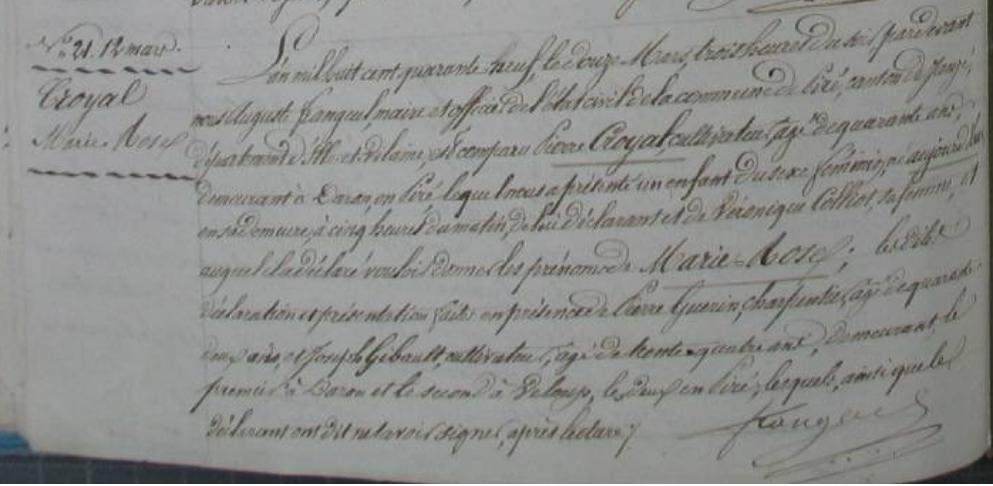 N.° 21. 12 mars.
Croyal
Marie-Rose
L'an mil huit cent quarante neuf, le douze Mars, trois heures du soir, par devant
nous Auguste frangeul, maire et officier de l'état civil de la commune de Piré, canton de Janzé,
département d'Ille-et-Vilaine, est comparu Pierre Croyal, cultivateur, agé de quarante ans,
demeurant à Daran, en Piré, lequel nous a présenté un enfant du sexe féminin, né aujourd'hui
en sa demeure, à cinq heures du matin, de lui déclarant et de Véronique Colliot, sa femme, et
auquel il a déclaré vouloir donner les prénoms de Marie-Rose; lesdites
déclaration et présentation faites en présence de Pierre Guerin, charpentier, agé de quarante
deux ans, et Joseph Gibault, cultivateur, agé de trente-quatre ans, demeurant, le
premier à Daran et le second à , les deux en Piré, lesquels, ainsi que le
déclarant ont dit ne savoir signer, après lecture.
frangeul